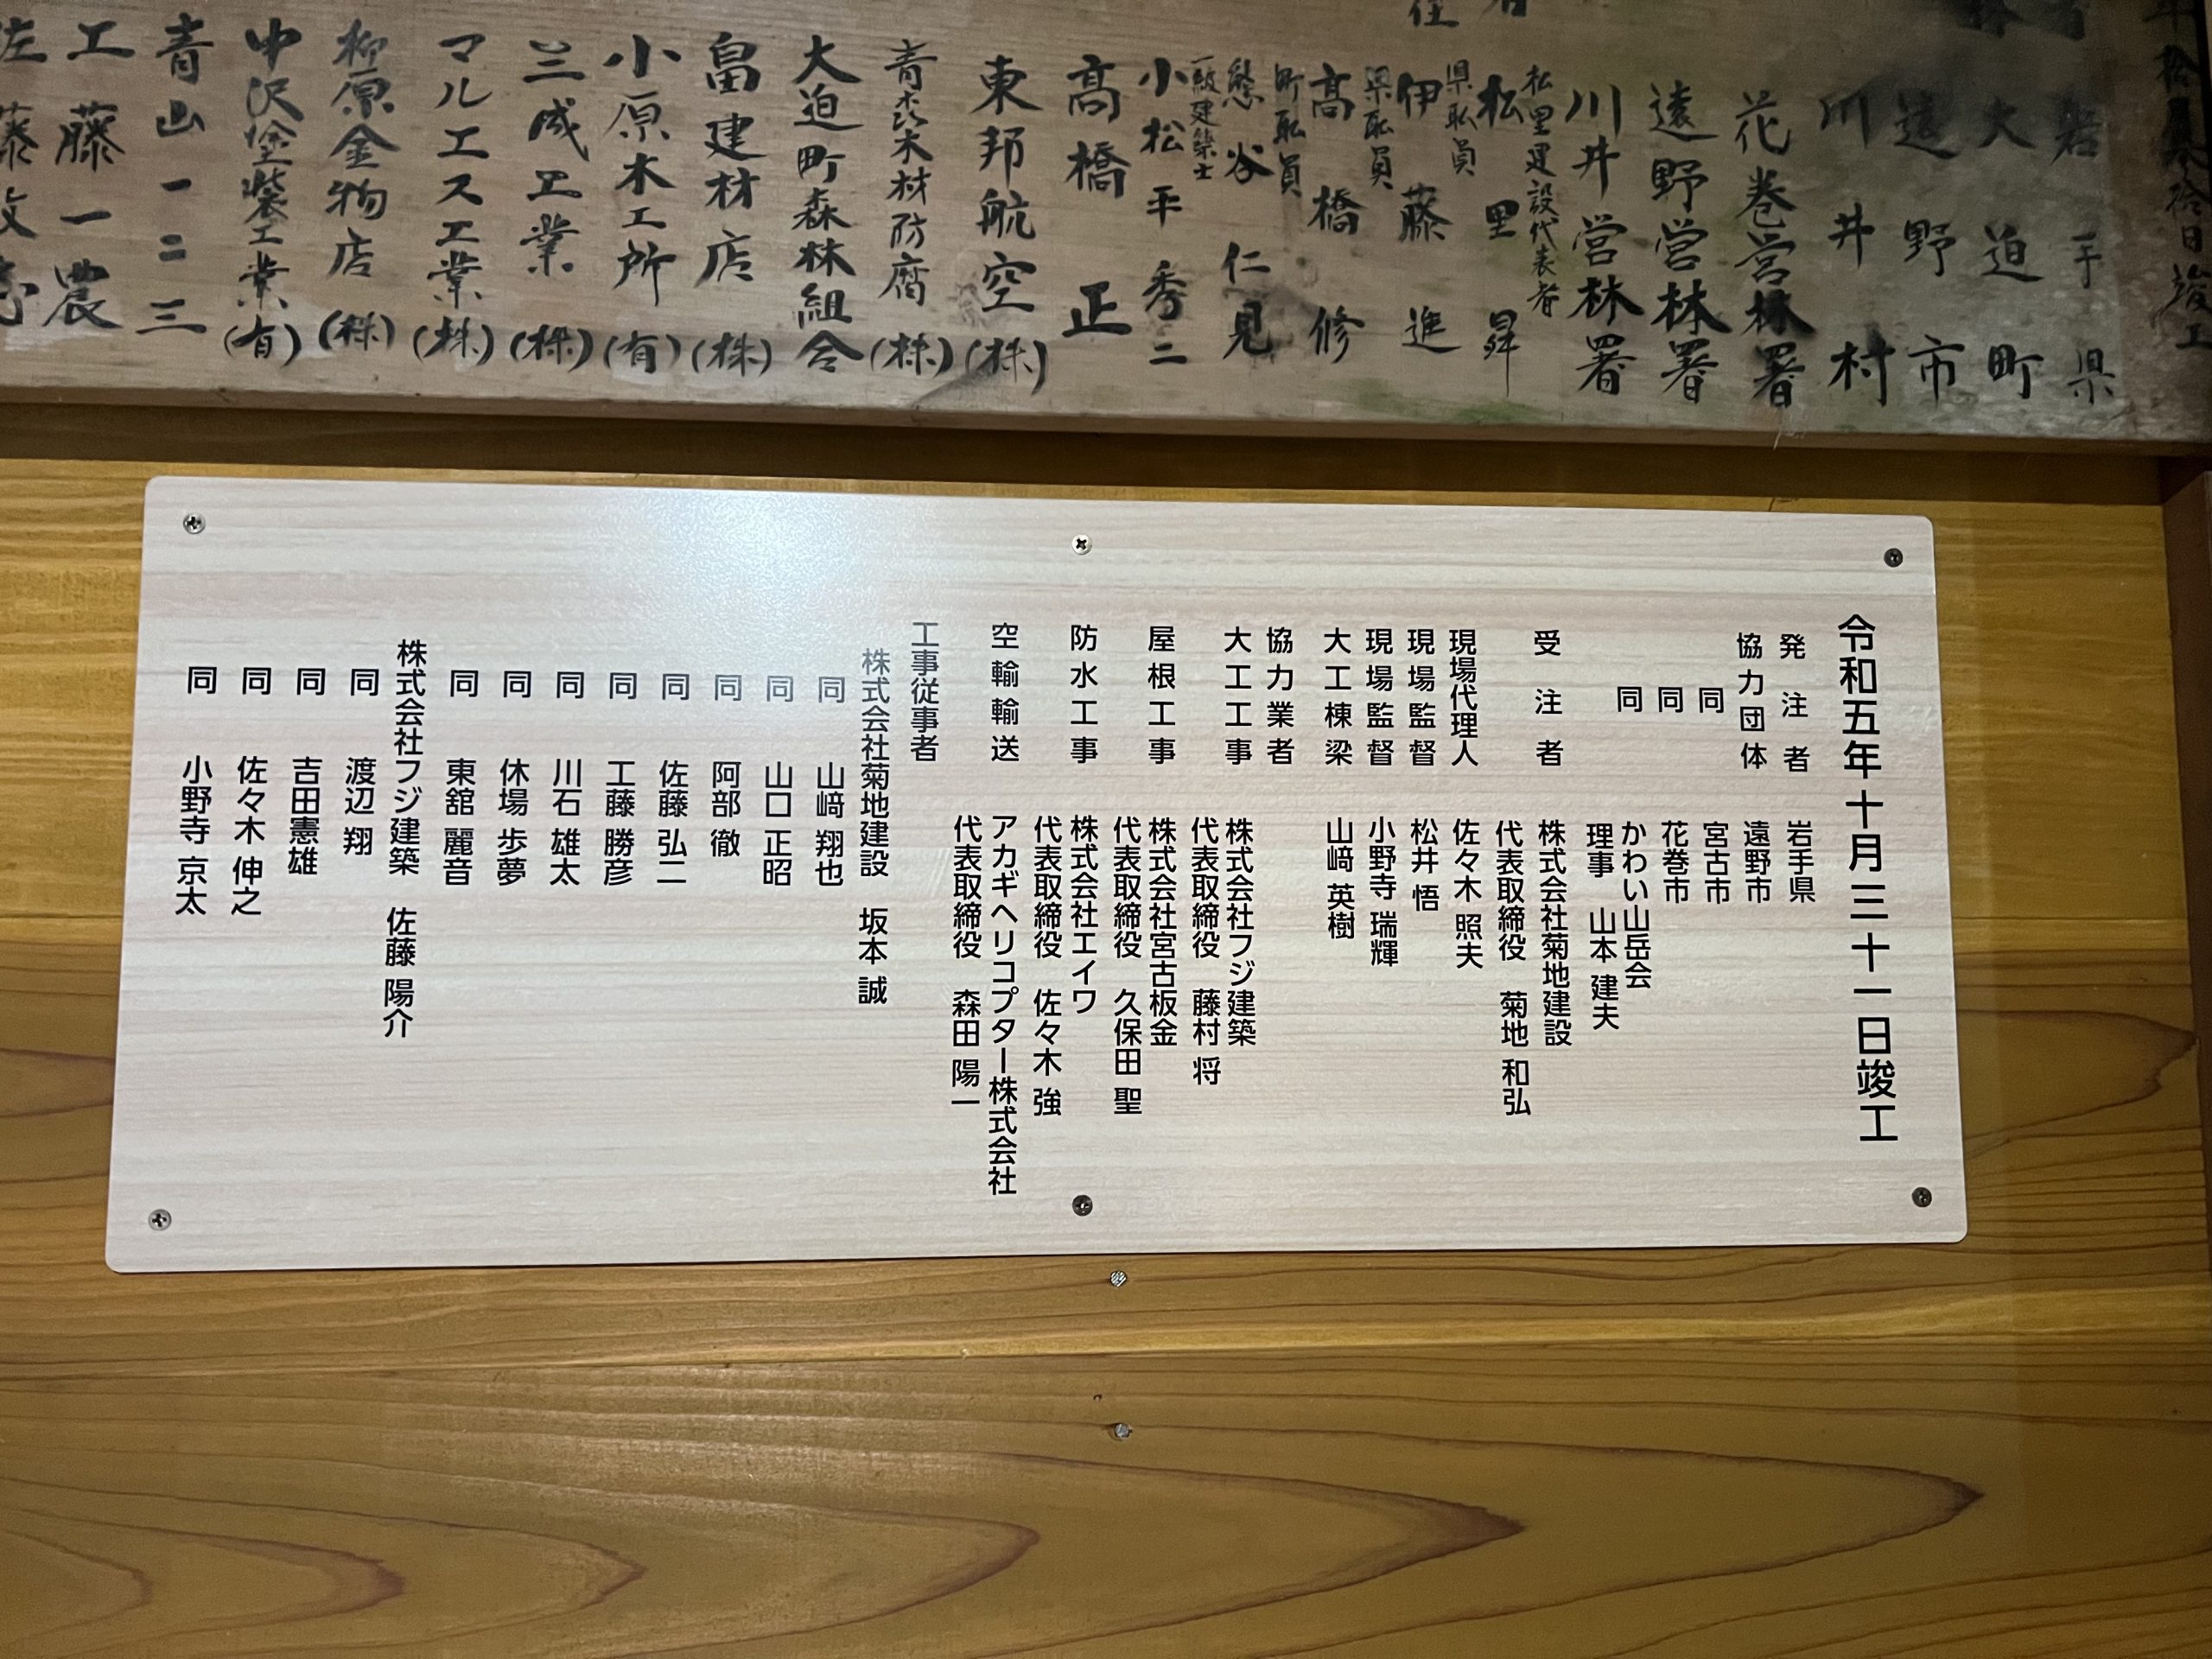 岩手県
大迫町
遠野市
川井村
花巻営林署
遠野営林署
川井営林署
松里建設代表者
松里昇
県職員
伊藤進
県職員
高橋修
町職員
熊谷仁見
一級建築士
小松平秀二
高橋正
東邦航空(株)
青森木材防腐(株)
大迫町森林組合
畠建材店(株)
小原木工所(有)
三成工業(株)
マルエス工業(株)
柳原金物店(株)
中沢塗装工業(有)
青山一二三
工藤一農
令和五年十月三十一日竣工
発注者 岩手県
協力団体 遠野市
同 宮古市
同 花巻市
同 かわい山岳会
理事 山本 建夫
受注者 株式会社菊地建設
代表取締役 菊地 和弘
現場代理人 佐々木 照夫
現場監督 松井 悟
現場監督 小野寺 瑞輝
大工棟梁 山﨑 英樹
協力業者
大工工事 株式会社フジ建築
代表取締役 藤村 将
屋根工事 株式会社宮古板金
代表取締役 久保田 聖
防水工事 株式会社エイワ
代表取締役 佐々木 強
空輸輸送 アカギヘリコプター株式会社
代表取締役 森田 陽一
工事従事者
株式会社菊地建設 坂本 誠
同 山﨑 翔也
同 山口 正昭
同 阿部 徹
同 佐藤 弘二
同 工藤 勝彦
同 川石 雄太
同 休場 歩夢
同 東舘 麗音
株式会社フジ建築 佐藤 陽介
同 渡辺 翔
同 吉田憲雄
同 佐々木 伸之
同 小野寺 京太